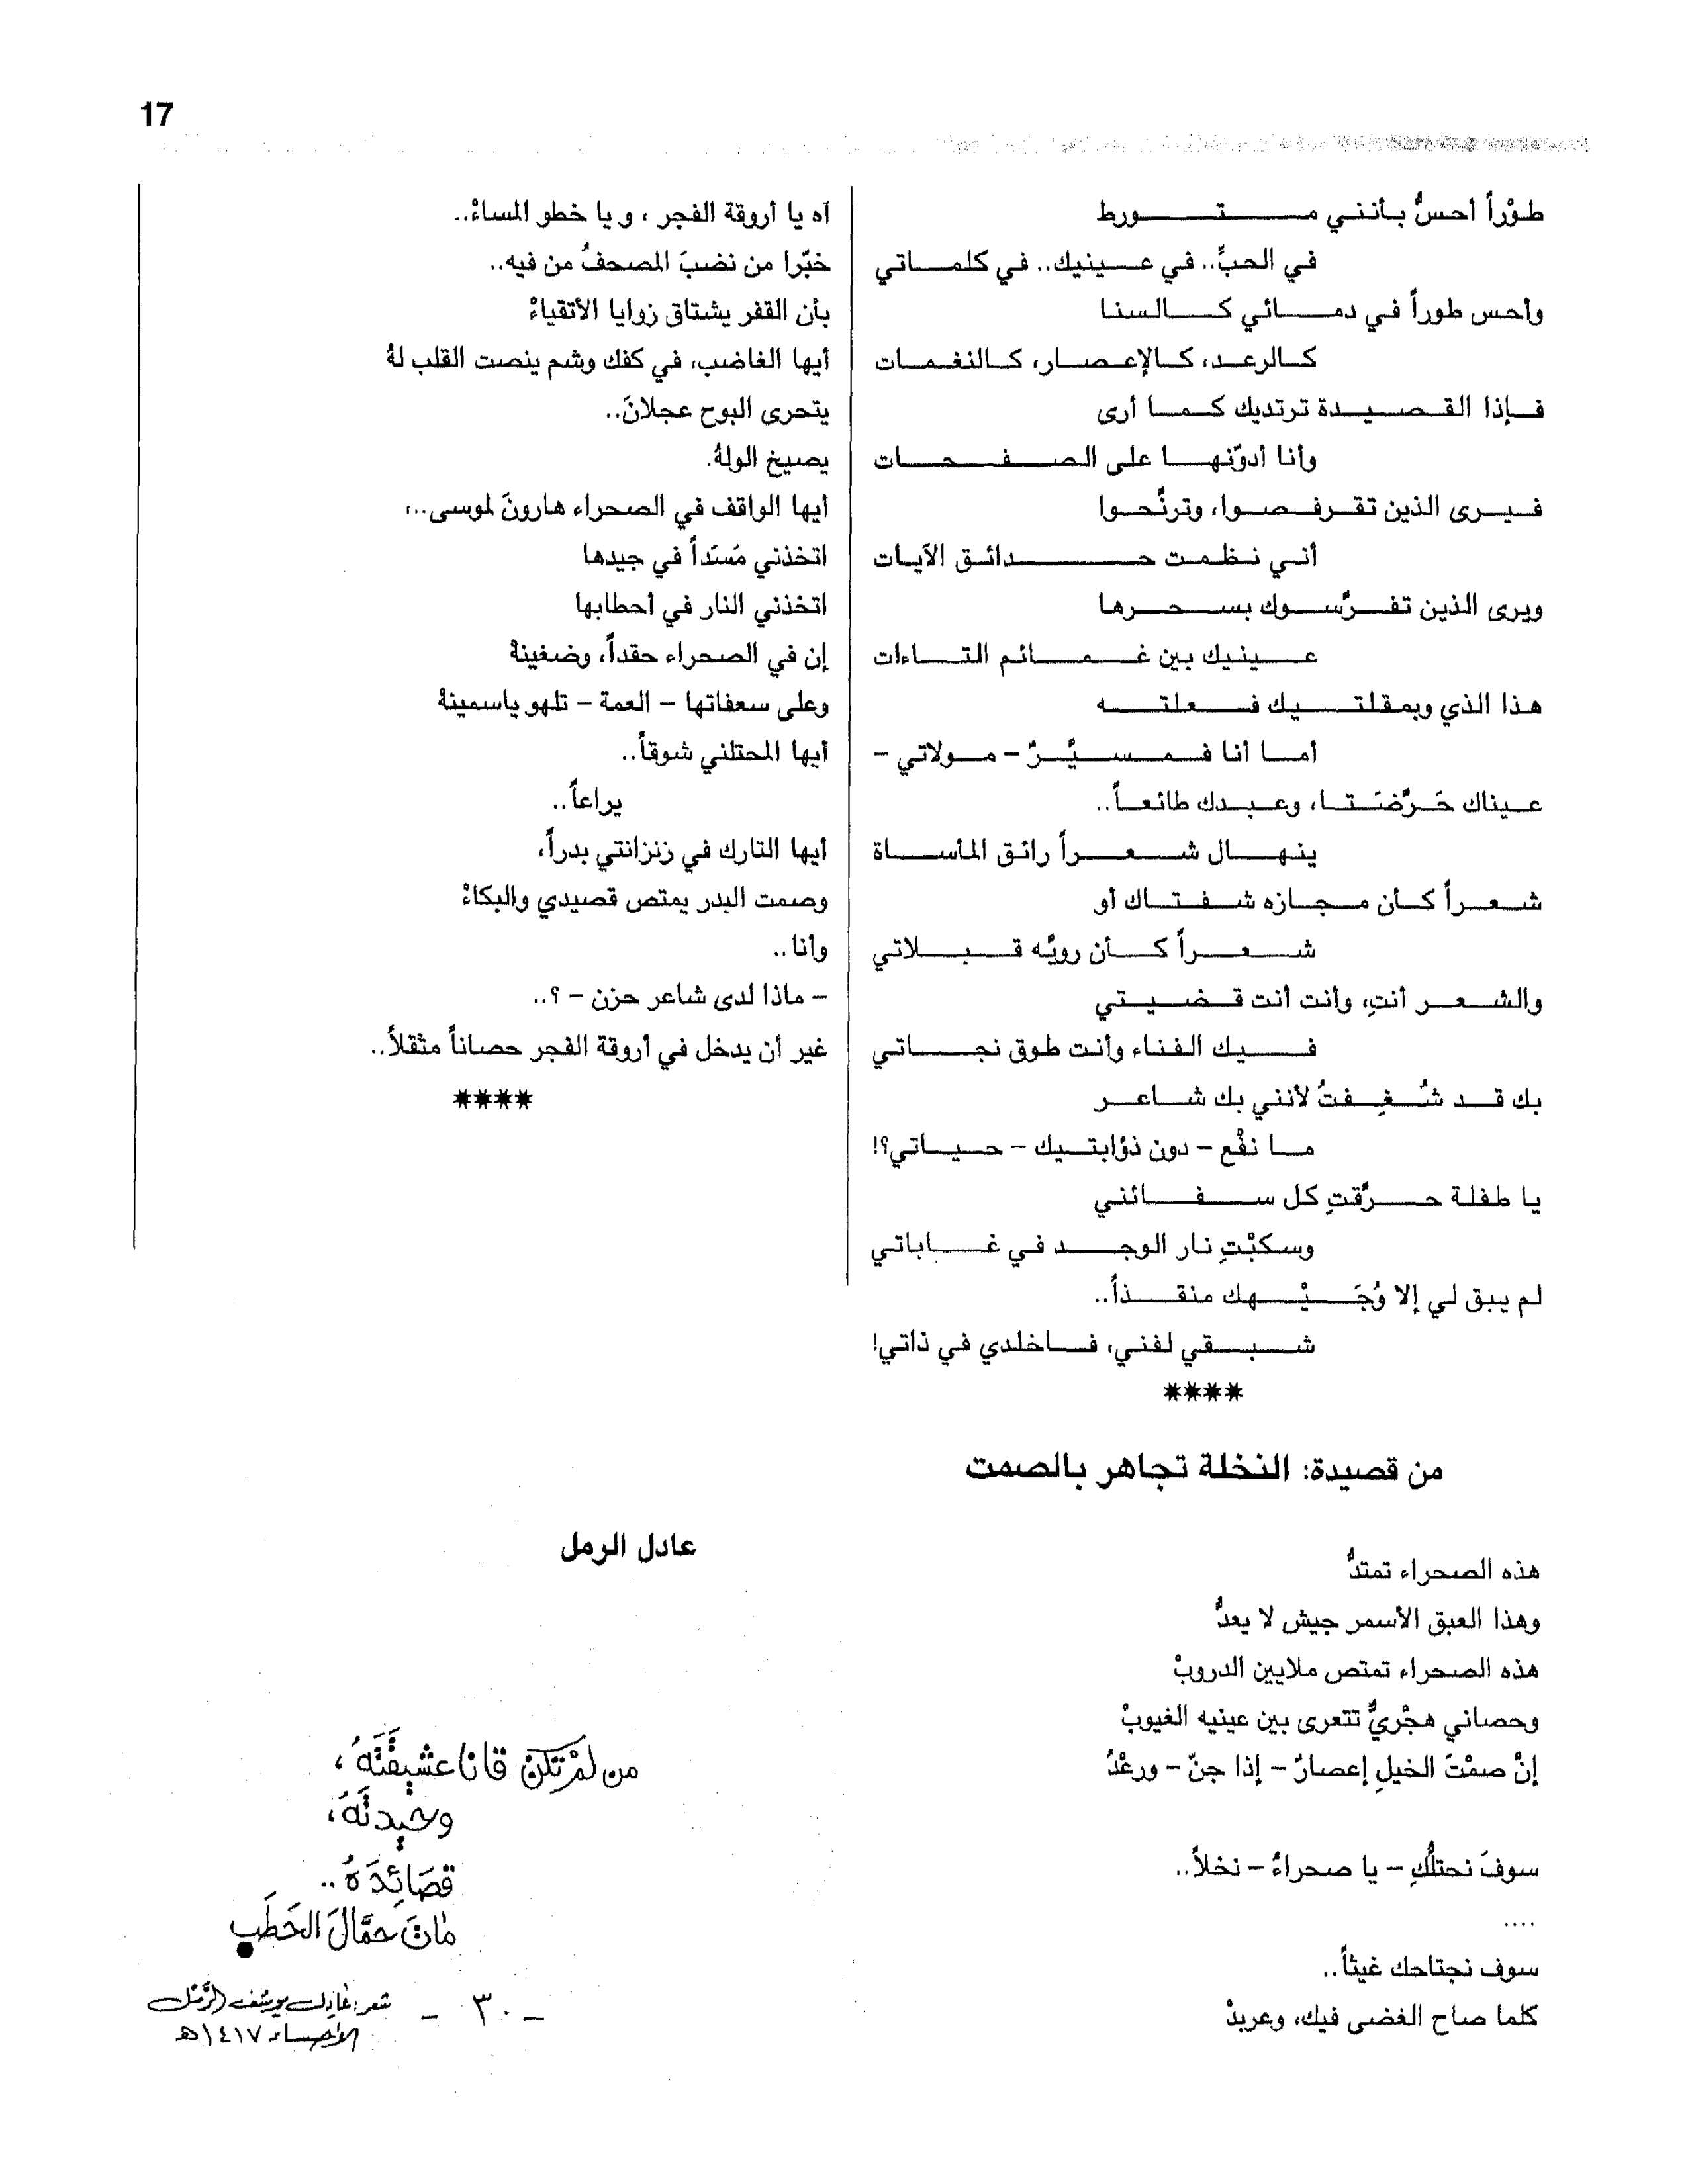 17
طوْراً أحسُّ بأنني متورط
في الحبِّ.. في عينيك.. في كلماتي
وأحس طوراً في دمائي كالسنا
كالرعد، كالإعصار، كالنغمات
فإذا القصيدة ترتديك كما أرى
وأنا أدوّنها على الصفحات
فيرى الذين تقرفصوا، وترنَّحوا
أني نظمت حدائق الآيات
ويرى الذين تفرَّسوك بسحرها
عينيك بين غمائم التاءات
هذا الذي وبمقلتيك فعلته
أما أنا فمسيَّرٌ - مولاتي -
عيناك حَرَّضَتا، وعبدك طائعاً..
ينهال شعراً رائق المأساة
شعراً كأن مجازه شفتاك أو
شعراً كأن رويَّه قبلاتي
والشعر أنتِ، وأنت أنت قضيتي
فيك الفناء وأنت طوق نجاتي
بك قد شُغِفتُ لأنني بك شاعر
ما نفْع - دون ذؤابتيك - حياتي؟!
يا طفلة حرَّقتِ كل سفائني
وسكبْتِ نار الوجد في غاباتي
لم يبق لي إلا وُجَيْهك منقذاً..
شبقي لفني، فاخلدي في ذاتي!
****
من قصيدة: النخلة تجاهر بالصمت
عادل الرمل
هذه الصحراء تمتدُّ
وهذا العبق الأسمر جيش لا يعدُّ
هذه الصحراء تمتص ملايين الدروبْ
وحصاني هجْريٌّ تتعرى بين عينيه الغيوبْ
إنْ صمْتَ الخيلِ إعصارٌ - إذا جنّ - ورعْدُ
سوفَ نحتلُّكِ - يا صحراءُ - نخلاً..
....
سوف نجتاحك غيثاً..
كلما صاح الغضى فيك، وعربدْ
آه يا أروقة الفجر ، ويا خطو المساءْ..
خبّرا من نضبَ المصحفُ من فيه..
بأن القفر يشتاق زوايا الأتقياءْ
أيها الغاضب، في كفك وشم ينصت القلب لهُ
يتحرى البوح عجلانَ..
يصيخ الولهُ.
أيها الواقف في الصحراء هارونَ لموسى..،
اتخذني مَسَداً في جيدها
اتخذني النار في أحطابها
إن في الصحراء حقداً، وضغينهْ
وعلى سعفاتها - العمة - تلهو ياسمينهْ
أيها المحتلني شوقاً..
يراعاً..
أيها التارك في زنزانتي بدراً،
وصمت البدر يمتص قصيدي والبكاءْ
وأنا..
- ماذا لدى شاعر حزن - ؟..
غير أن يدخل في أروقة الفجر حصاناً مثقلاً..
****
من لمْ تكنْ قانا عشيقَتَهُ،
وحيدتَهُ،
قصَائِدَهُ..
ماتَ حمَّالَ الحَطَبِ
- ٣٠ -
شعر: عادل يوسف الرَّمل
الأحساء ١٤١٧هـ